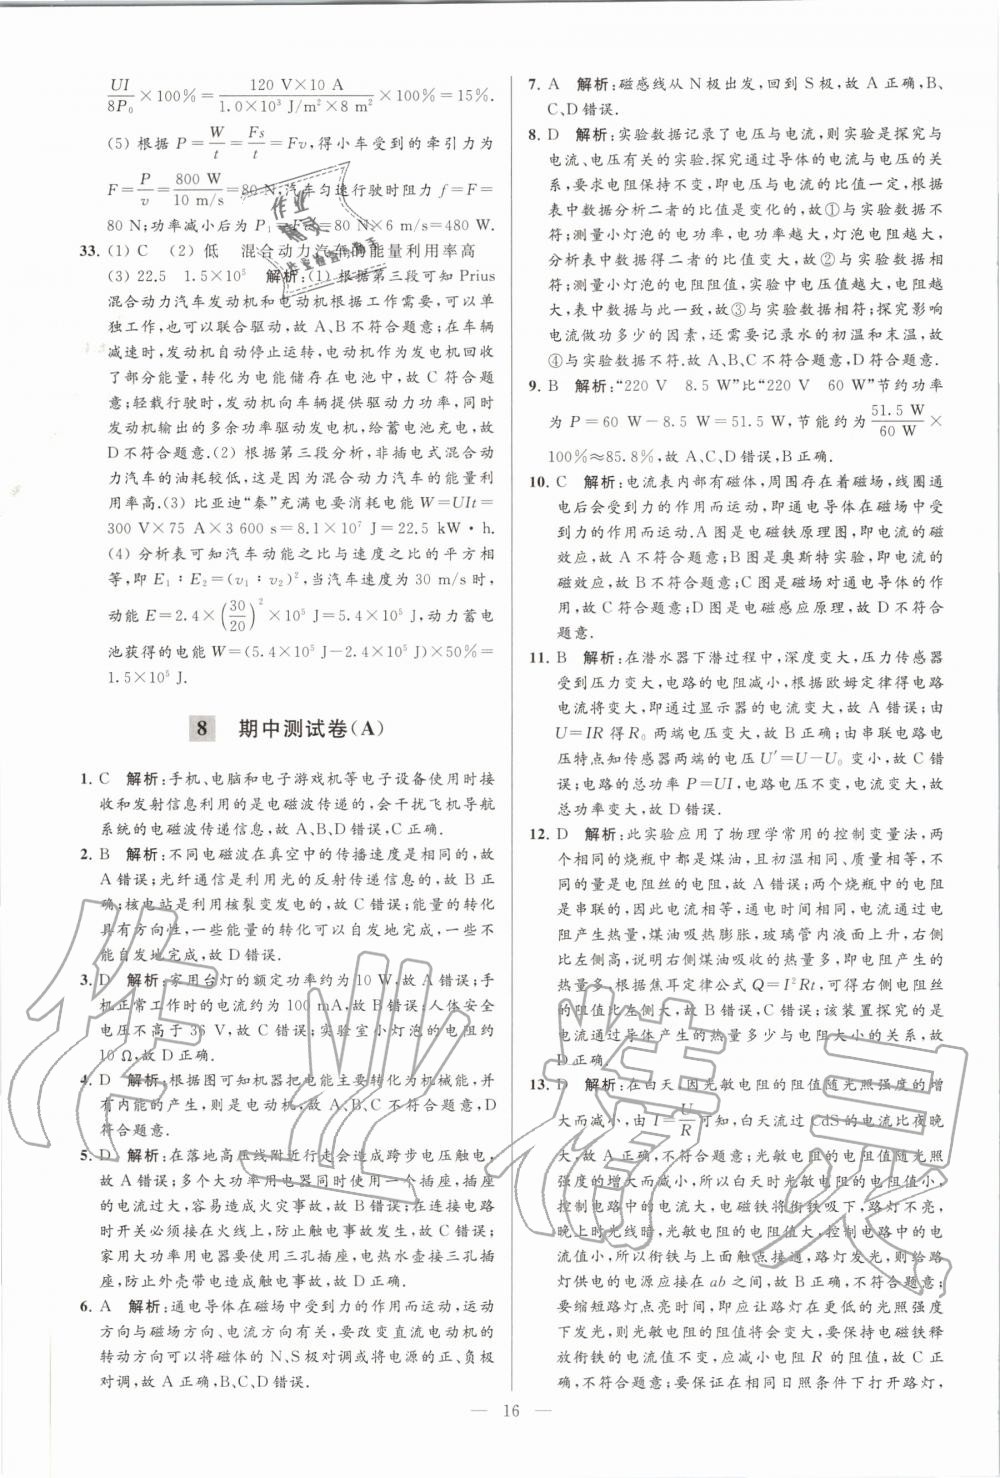 UI/8P₀×100%=120 V×10 A/1.0×10³ J/m²×8 m²×100%=15%.
(5) 根据 P=W/t=Fs/t=Fv,得小车受到的牵引力为
F=P/v=800 W/10 m/s=80 N;汽车匀速行驶时阻力 f=F=
80 N;功率减小后为 P₁=Fv=80 N×6 m/s=480 W.
33. (1) C (2) 低 混合动力汽车的能量利用率高
(3) 22.5 1.5×10⁵ 解析:(1) 根据第三段可知 Prius
混合动力汽车发动机和电动机根据工作需要,可以单
独工作,也可以联合驱动,故 A、B 不符合题意;在车辆
减速时,发动机自动停止运转,电动机作为发电机回收
了部分能量,转化为电能储存在电池中,故 C 符合题
意;轻载行驶时,发动机向车辆提供驱动力功率,同时
发动机输出的多余功率驱动发电机,给蓄电池充电,故
D 不符合题意.(2) 根据第三段分析,非插电式混合动
力汽车的油耗较低,这是因为混合动力汽车的能量利
用率高.(3) 比亚迪“秦”充满电要消耗电能 W=UIt=
300 V×75 A×3 600 s=8.1×10⁷ J=22.5 kW·h.
(4) 分析表可知汽车动能之比与速度之比的平方相
等,即 E₁∶E₂=(v₁∶v₂)²,当汽车速度为 30 m/s 时,
动能 E=2.4×(30/20)²×10⁵ J=5.4×10⁵ J;动力蓄电
池获得的电能 W=(5.4×10⁵ J-2.4×10⁵ J)×50%=
1.5×10⁵ J.
8 期中测试卷(A)
1. C 解析:手机、电脑和电子游戏机等电子设备使用时接
收和发射信息利用的是电磁波传递的,会干扰飞机导航
系统的电磁波传递信息,故 A、B、D 错误,C 正确.
2. B 解析:不同电磁波在真空中的传播速度是相同的,故
A 错误;光纤通信是利用光的反射传递信息的,故 B 正
确;核电站是利用核裂变发电的,故 C 错误;能量的转化
具有方向性,一些能量的转化可以自发地完成,一些不
能自发地完成,故 D 错误.
3. D 解析:家用台灯的额定功率约为 10 W,故 A 错误;手
机正常工作时的电流约为 100 mA,故 B 错误;人体安全
电压不高于 36 V,故 C 错误;实验室小灯泡的电阻约
10 Ω,故 D 正确.
4. D 解析:根据图可知机器把电能主要转化为机械能,并
有内能的产生,则是电动机,故 A、B、C 不符合题意,D
符合题意.
5. D 解析:在落地高压线附近行走会造成跨步电压触电,
故 A 错误;多个大功率用电器同时使用一个插座,插座
的电流过大,容易造成火灾事故,故 B 错误;在连接电路
时开关必须接在火线上,防止触电事故发生,故 C 错误;
家用大功率用电器要使用三孔插座,电热水壶接三孔插
座,防止外壳带电造成触电事故,故 D 正确.
6. A 解析:通电导体在磁场中受到力的作用而运动,运动
方向与磁场方向、电流方向有关,要改变直流电动机的
转动方向可以将磁体的 N、S 极对调或将电源的正、负极
对调,故 A 正确,B、C、D 错误.
7. A 解析:磁感线从 N 极出发,回到 S 极,故 A 正确,B、
C、D 错误.
8. D 解析:实验数据记录了电压与电流,则实验是探究与
电流、电压有关的实验.探究通过导体的电流与电压的关
系,要求电阻保持不变,即电压与电流的比值一定,根据
表中数据分析二者的比值是变化的,故①与实验数据不
符;测量小灯泡的电功率,电功率越大,灯泡的电阻越大,
分析数据得二者的比值变大,故②与实验数据
相符;测量小灯泡的电阻阻值,实验中电压与电流值都变
大,表中数据与此一致,故③与实验数据相符;探究影响
电流做功多少的因素,还需要记录水的初温和末温,故
④与实验数据不符.故 A、B、C 不符合题意,D 符合题意.
9. B 解析:“220 V 8.5 W”比“220 V 60 W”节约功率
为 P=60 W-8.5 W=51.5 W,节能约为51.5 W/60 W×
100%≈85.8%,故 A、C、D 错误,B 正确.
10. C 解析:电流表内部有磁体,周围存在着磁场,线圈通
电后会受到力的作用而运动,即通电导体在磁场中受
到力的作用而运动.A 图是电磁铁原理图,即电流的磁
效应,故 A 不符合题意;B 图是奥斯特实验,即电流的
磁效应,故 B 不符合题意;C 图是磁场对通电导体的作
用,故 C 符合题意;D 图是电磁感应原理,故 D 不符合
题意.
11. B 解析:在潜水器下潜过程中,深度变大,压力传感器
受到压力变大,电路的电阻减小,根据欧姆定律得电路
电流将变大,即通过显示器的电流变大,故 A 错误;由
U=IR 得 R₀ 两端电压变大,故 B 正确;由串联电路电
压特点知传感器两端的电压 U′=U-U₀ 变小,故 C 错
误;电路的总功率 P=UI,电压不变,电流变大,故
总功率变大,故 D 错误.
12. D 解析:此实验应用了物理学常用的控制变量法,两
个相同的烧瓶中都是煤油,且初温相同、质量相等,不
同的量是电阻丝的电阻,故 A 错误;两个烧瓶中的电阻
是串联的,因此电流相等,通电时间相同,电流通过电
阻产生热量,煤油吸热膨胀,玻璃管内液面上升,右侧
比左侧高,说明右侧煤油吸收的热量多,即电阻产生的
热量多,根据焦耳定律公式 Q=I²Rt,可得右侧电阻丝
的阻值比左侧大,故 B 错误,C 错误;该装置探究的是
电流通过导体产生的热量多少与电阻大小的关系,故
D 正确.
13. D 解析:在白天,因光敏电阻的阻值随光照强度的增
大而减小,由 I=U/R可知,白天流过 CdS 的电流比夜晚
大,故 A 不符合题意;光敏电阻的阻值随光照
强度的增大而减小,所以白天时光敏电阻的阻值小,
控制电路中的电流大,电磁铁将衔铁吸下,路灯不亮,
晚上时光线暗,光敏电阻的电阻值大,控制电路中的电
流小,所以衔铁与上面触点接通,路灯发光,则给路
灯供电的电源应接在 ab 之间,故 B、C 不符合题意;
要缩短路灯点亮时间,即应让路灯在更低的光照强度
下发光,则光敏电阻的阻值将会变大,要保持电磁铁释
放衔铁的电流值不变,应减小电阻 R 的阻值,故 D 符
合题意.要保证在相同日照条件下打开路灯,
16